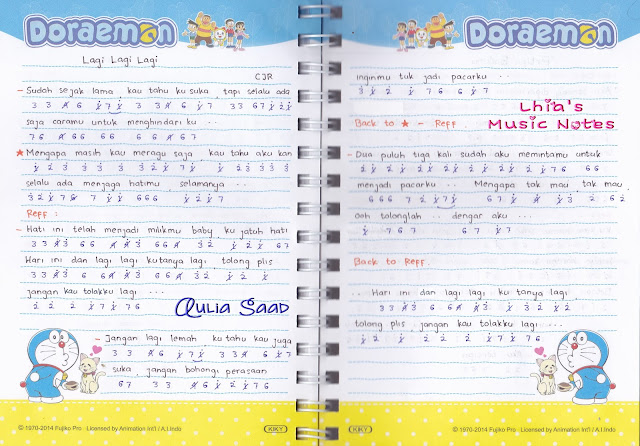 Doraemon
Lagi Lagi Lagi
CJR
- Sudah sejak lama, kau tahu ku suka, tapi selalu ada
3 3 4 6 1 7 1 3 3 4 6 1 7 3 3 6 7 1 2 1
saja caramu untuk menghindari ku ..
7 6 4 6 6 6 6 6 6 4 6 7
* Mengapa masih kau meragu saja, kau tahu aku kan
selalu ada menjaga hatimu selamanya ...
Reff :
- Hati ini telah menjadi milikmu baby, ku jatuh hati
Hari ini dan lagi lagi kutanya lagi, tolong plis
jangan kau tolakku lagi ....
2 2 2 1 7 1 7 6
Aulia Saad
- Jangan lagi lemah, ku tahu kau juga
3 3 4 6 1 7 1 3 3 4 6 1 7
suka, jangan bohongi perasaan
6 7 3 3 4 6 1 2 1 7 6
© 1970-2014 Fujiko Pro · Licensed by Animation Int'l / A.I.Indo
KIKY
Doraemon
inginmu tuk jadi pacarku ...
3 1 2 1 7 6 6 1 7
Lhia's
Music Notes
Back to * - Reff
- Dua puluh tiga kali sudah aku memintamu untuk
menjadi pacarku ... Mengapa tak mau tak mau,
ooh tolonglah .. dengar aku ...
1 7 6 7 6 7 1 7
Back to Reff.
.. Hari ini dan lagi lagi, ku tanya lagi,
tolong plis, jangan kau tolakku lagi ....
1 2 1 2 1 2 2 2 1 7 1 7 6
KIKY
© 1970-2014 Fujiko Pro · Licensed by Animation Int'l / A.I.Indo